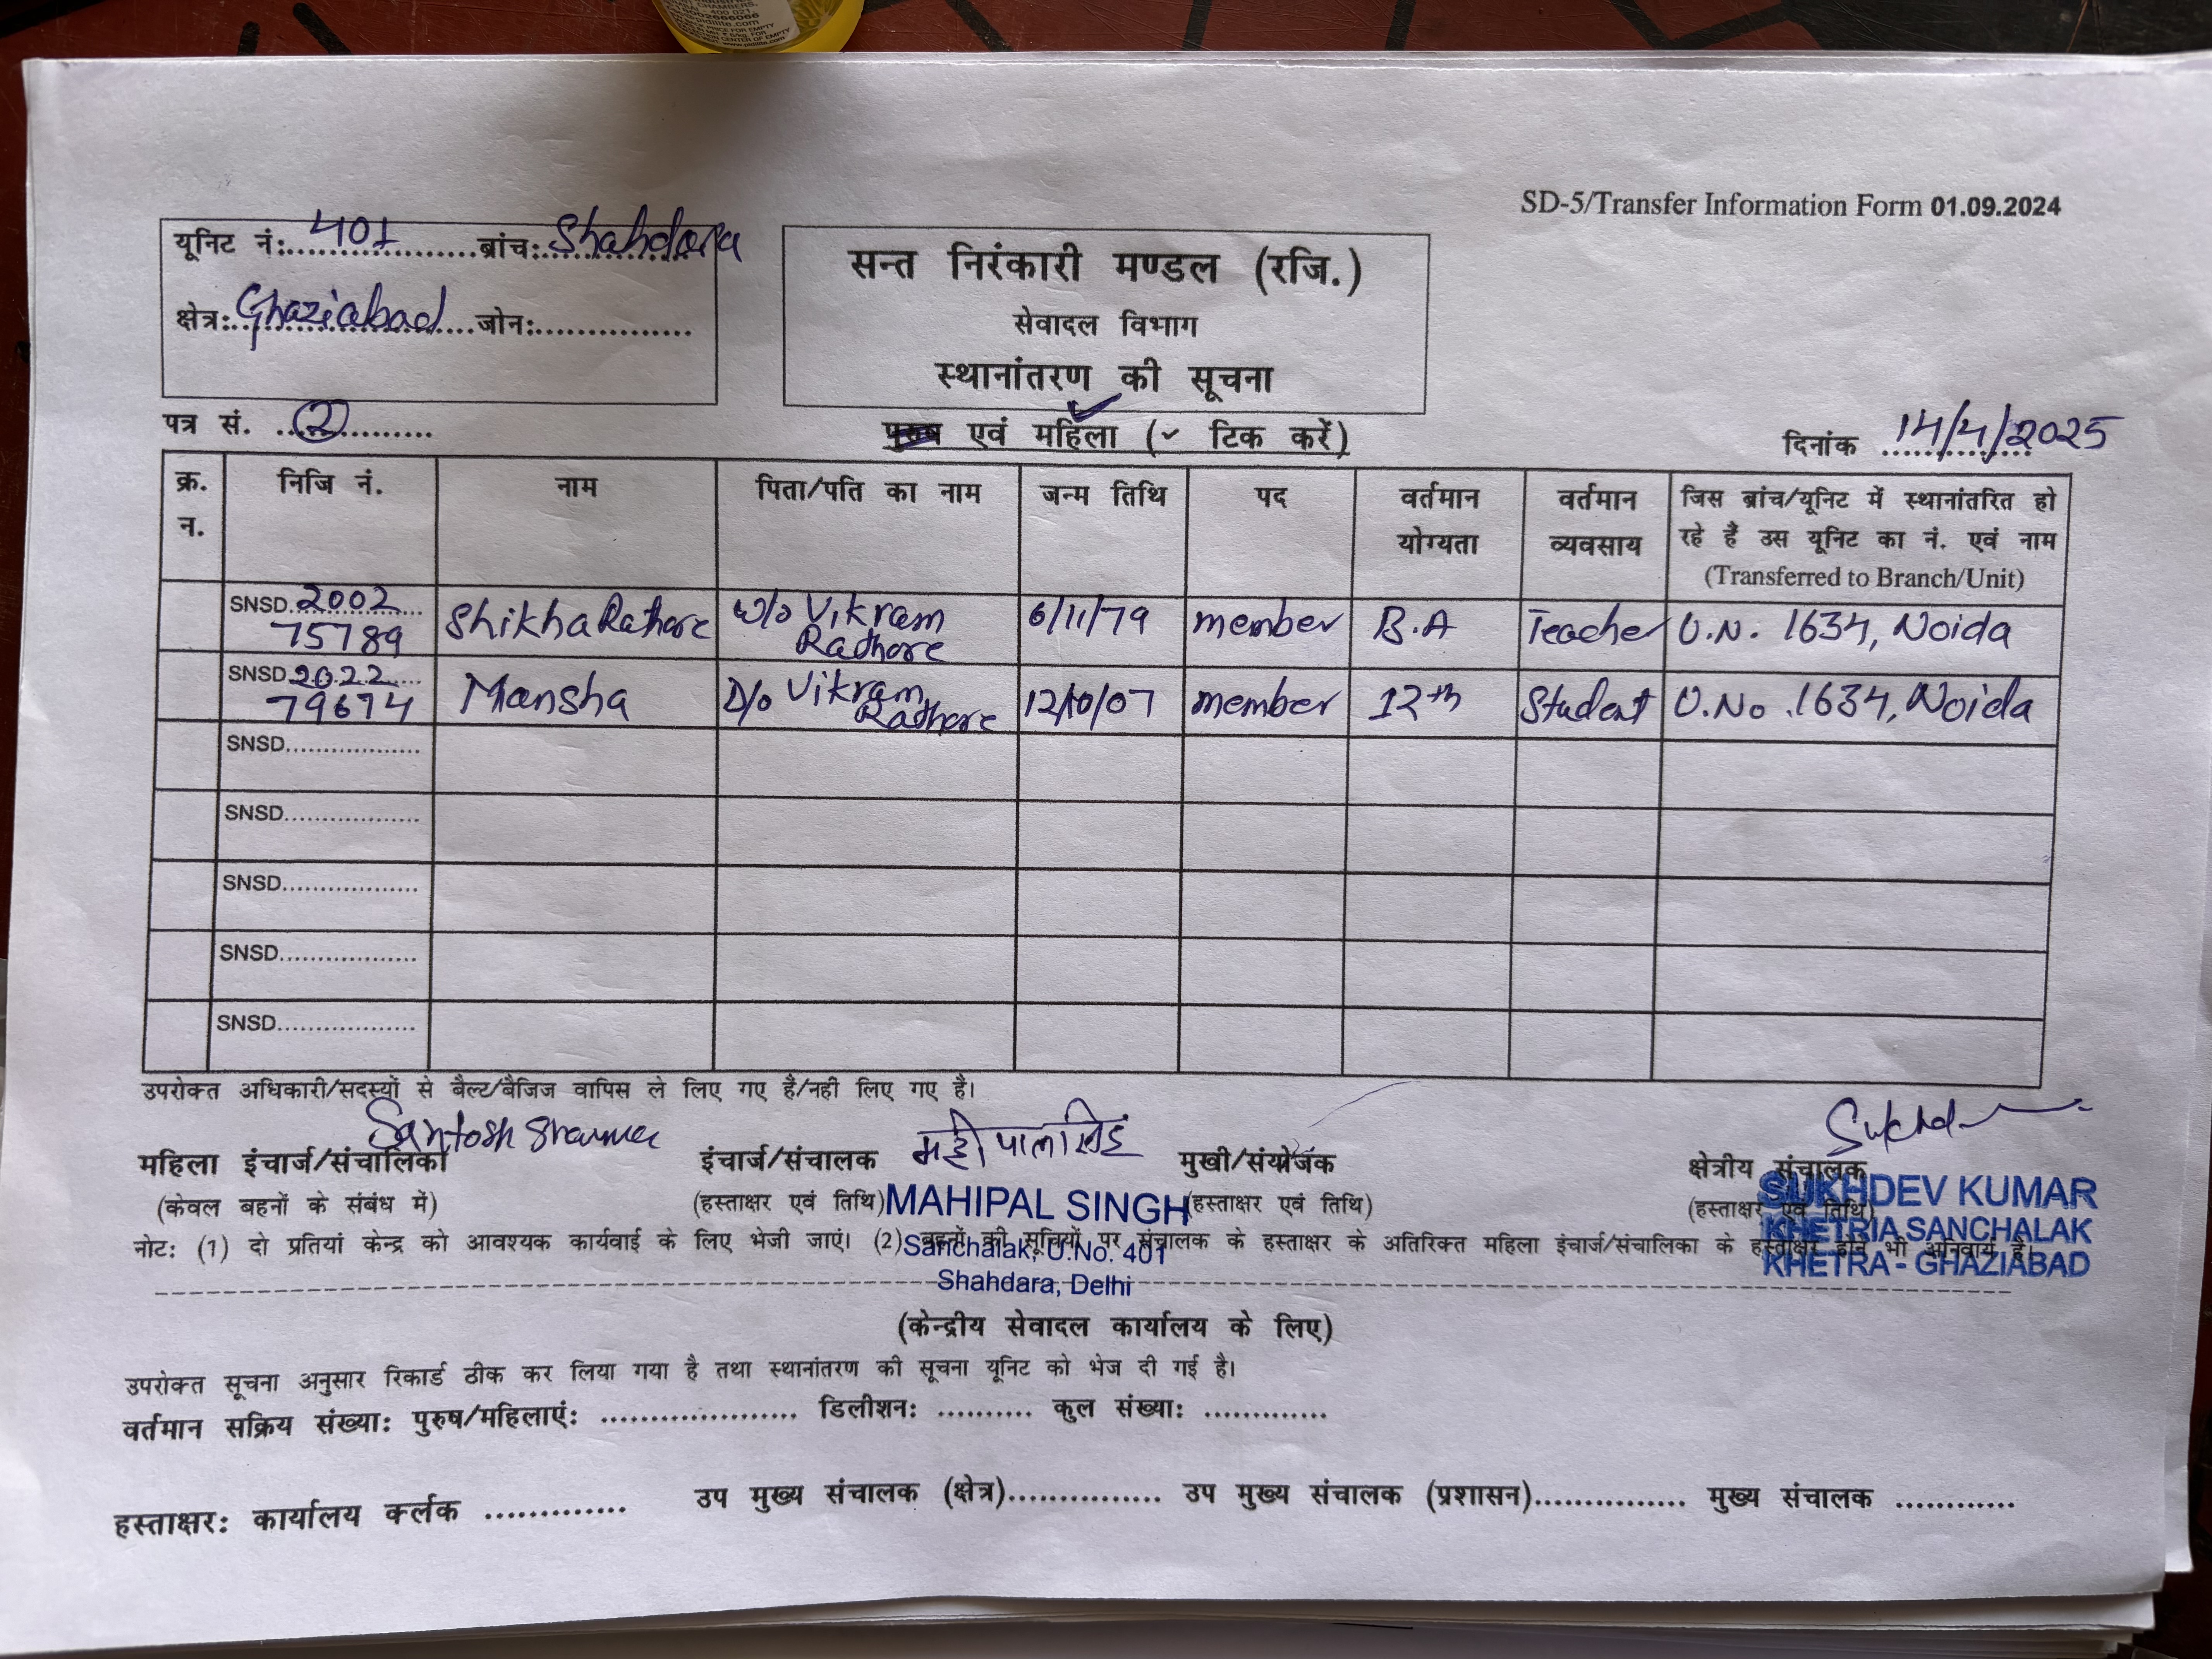 CHAMBERS,
400 021.
18002666066
www.pidilite.com
SD-5/Transfer Information Form 01.09.2024
यूनिट नं:....401....ब्रांच:..Shahdara
क्षेत्र:..Ghaziabad....जोन:...............
सन्त निरंकारी मण्डल (रजि.)
सेवादल विभाग
स्थानांतरण की सूचना
पत्र सं. ...2...........
पुरुष एवं महिला (✓ टिक करें)
दिनांक 14/4/2025
क्र. न. निजि नं. नाम पिता/पति का नाम जन्म तिथि पद वर्तमान योग्यता वर्तमान व्यवसाय जिस ब्रांच/यूनिट में स्थानांतरित हो रहे हैं उस यूनिट का नं. एवं नाम (Transferred to Branch/Unit)
SNSD 2002 75789 Shikha Rathore W/o Vikram Rathore 6/11/79 member B.A Teacher U.N. 1634, Noida
SNSD 2022 79674 Mansha D/o Vikram Rathore 12/10/07 member 12th Student U.No. 1634, Noida
SNSD...................
SNSD...................
SNSD...................
SNSD...................
SNSD...................
उपरोक्त अधिकारी/सदस्यों से बैल्ट/बैजिज वापिस ले लिए गए हैं/नहीं लिए गए है।
Santosh Sharma महीपाल सिंह Sukhd
महिला इंचार्ज/संचालिका इंचार्ज/संचालक मुखी/संयोजक क्षेत्रीय संचालक
(केवल बहनों के संबंध में) (हस्ताक्षर एवं तिथि) (हस्ताक्षर एवं तिथि) (हस्ताक्षर एवं तिथि)
MAHIPAL SINGH
Sanchalak, U.No. 401
Shahdara, Delhi
SUKHDEV KUMAR
KHETRIA SANCHALAK
KHETRA - GHAZIABAD
नोट: (1) दो प्रतियां केन्द्र को आवश्यक कार्यवाई के लिए भेजी जाएं। (2) बहनों की सूचियों पर संचालक के हस्ताक्षर के अतिरिक्त महिला इंचार्ज/संचालिका के हस्ताक्षर होने भी अनिवार्य है।
(केन्द्रीय सेवादल कार्यालय के लिए)
उपरोक्त सूचना अनुसार रिकार्ड ठीक कर लिया गया है तथा स्थानांतरण की सूचना यूनिट को भेज दी गई है।
वर्तमान सक्रिय संख्या: पुरुष/महिलाएं: ..................... डिलीशन: .......... कुल संख्या: .............
हस्ताक्षर: कार्यालय क्लर्क ............. उप मुख्य संचालक (क्षेत्र)............... उप मुख्य संचालक (प्रशासन)............... मुख्य संचालक ............